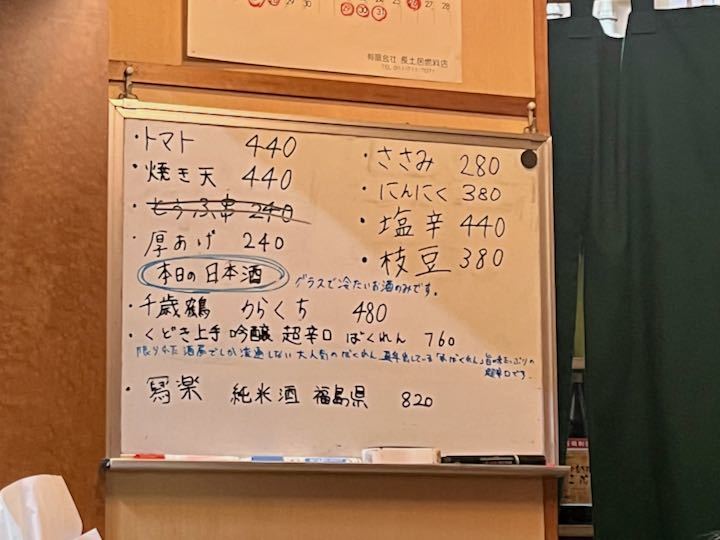 28 29 30
29 30 31
26 27 28
有限会社 長土居燃料店
・トマト 440
・焼き天 440
・とうふ串 240
・厚あげ 240
・ささみ 280
・にんにく 380
・塩辛 440
・枝豆 380
本日の日本酒
グラスで冷たいお酒のみです。
・千歳鶴 からくち 480
・くどき上手 吟醸 超辛口 ばくれん 760
限られた酒屋でしか流通しない大人気のばくれん 通年出している「赤ばくれん」旨味たっぷりの
超辛口です。
・寫楽 純米酒 福島県 820